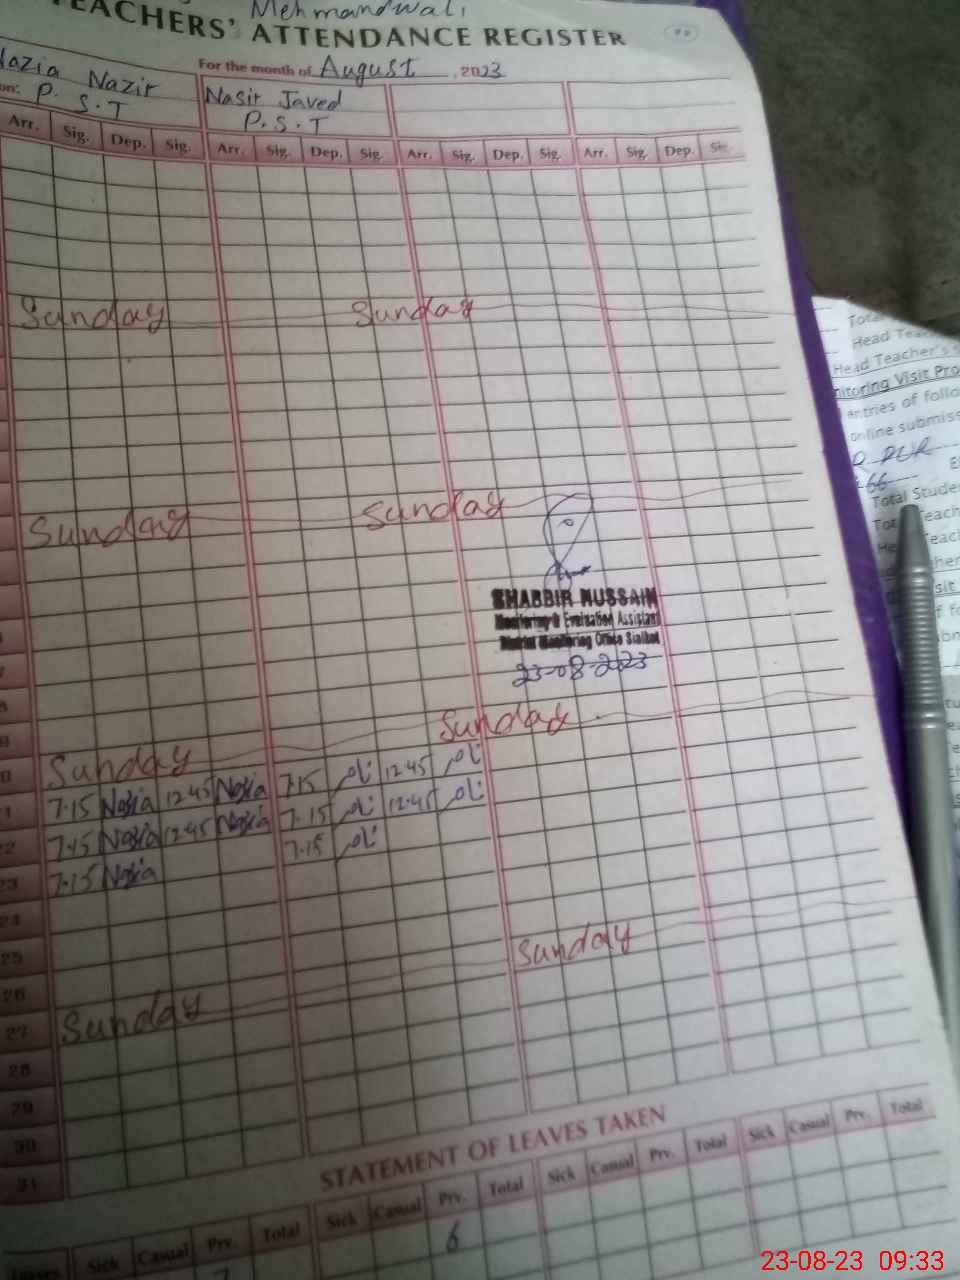 Mehmandwali
TEACHERS' ATTENDANCE REGISTER
For the month of August, 2023
Nazia Nazir Nasir Javed
P.S.T P.S.T
Arr. Sig. Dep. Sig. Arr. Sig. Dep. Sig. Arr. Sig. Dep. Sig. Arr. Sig. Dep. Sig.
Sunday Sunday
Sunday Sunday
SHABBIR HUSSAIN
Monitoring & Evaluation Assistant
District Monitoring Office Sialkot
23-08-2023
Sunday Sunday
7.15 Nazia 12.45 Nazia 7.15 ناصر 12.45 ناصر
7.15 Nazia 12.45 Nazia 7.15 ناصر 12.45 ناصر
23 7.15 Nazia 7.15 ناصر
24
25
26
27 Sunday Sunday
28
29
30
31
STATEMENT OF LEAVES TAKEN
Sick Casual Prv. Total Sick Casual Prv. Total Sick Casual Prv. Total Sick Casual Prv. Total
6
Head Teacher's
Monitoring Visit
entries of
online
66
Total
23-08-23 09:33